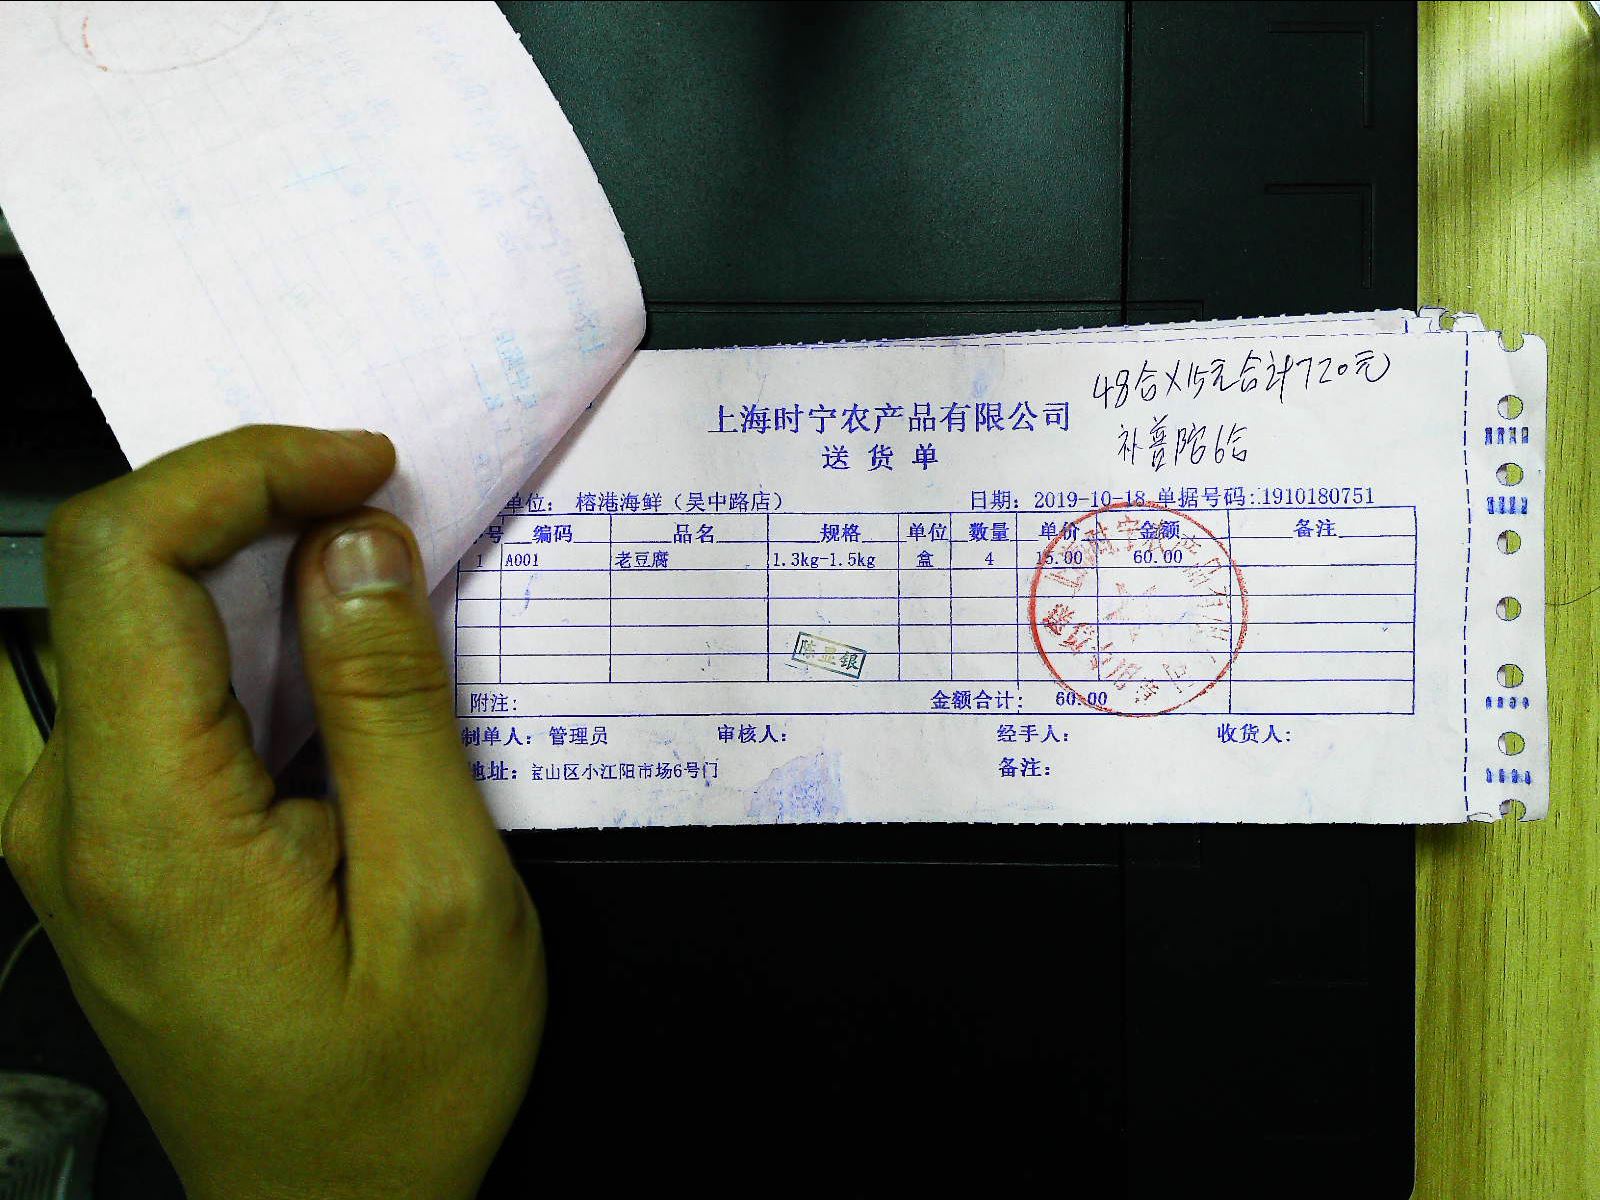 48合×15元合计720元
补普陀6合
上海时宁农产品有限公司
送货单
单位: 榕港海鲜(吴中路店) 日期: 2019-10-18 单据号码: 1910180751
号 编码 品名 规格 单位 数量 单价 金额 备注
1 A001 老豆腐 1.3kg-1.5kg 盒 4 15.00 60.00
陈显银
附注: 金额合计: 60.00
制单人: 管理员 审核人: 经手人: 收货人:
地址: 宝山区小江阳市场6号门 备注: